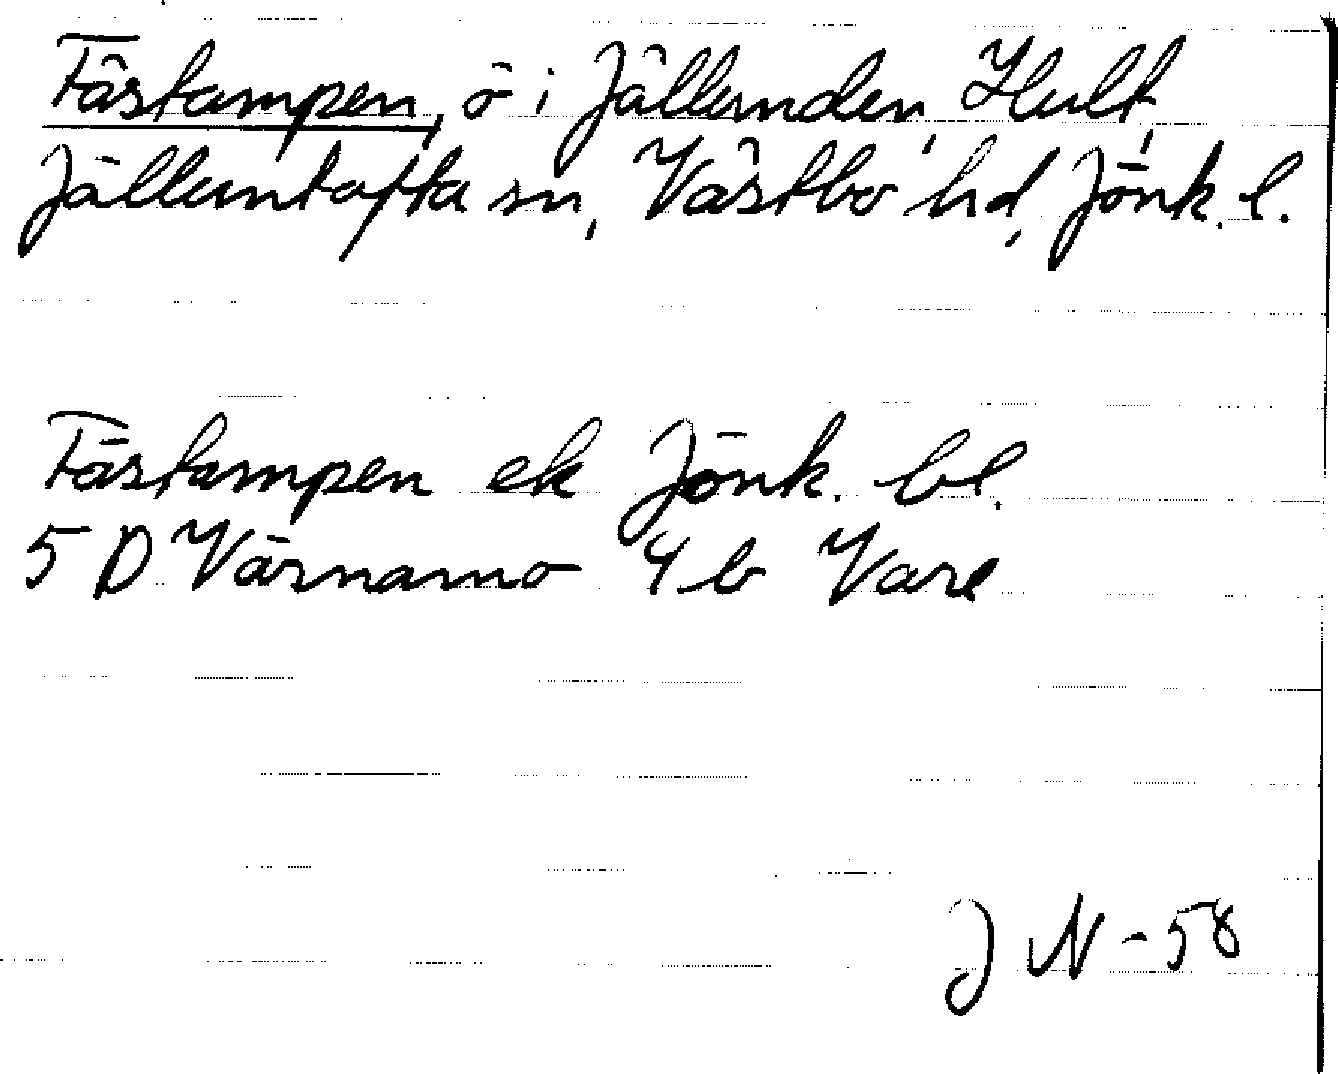 Fästampen, ö i Jällunden, Hult,
Jälluntofta sn, Västbo hd, Jönk. l.
Fästampen ek Jönk. bl.
5 D Värnamo 4 b Vare
J N - 58